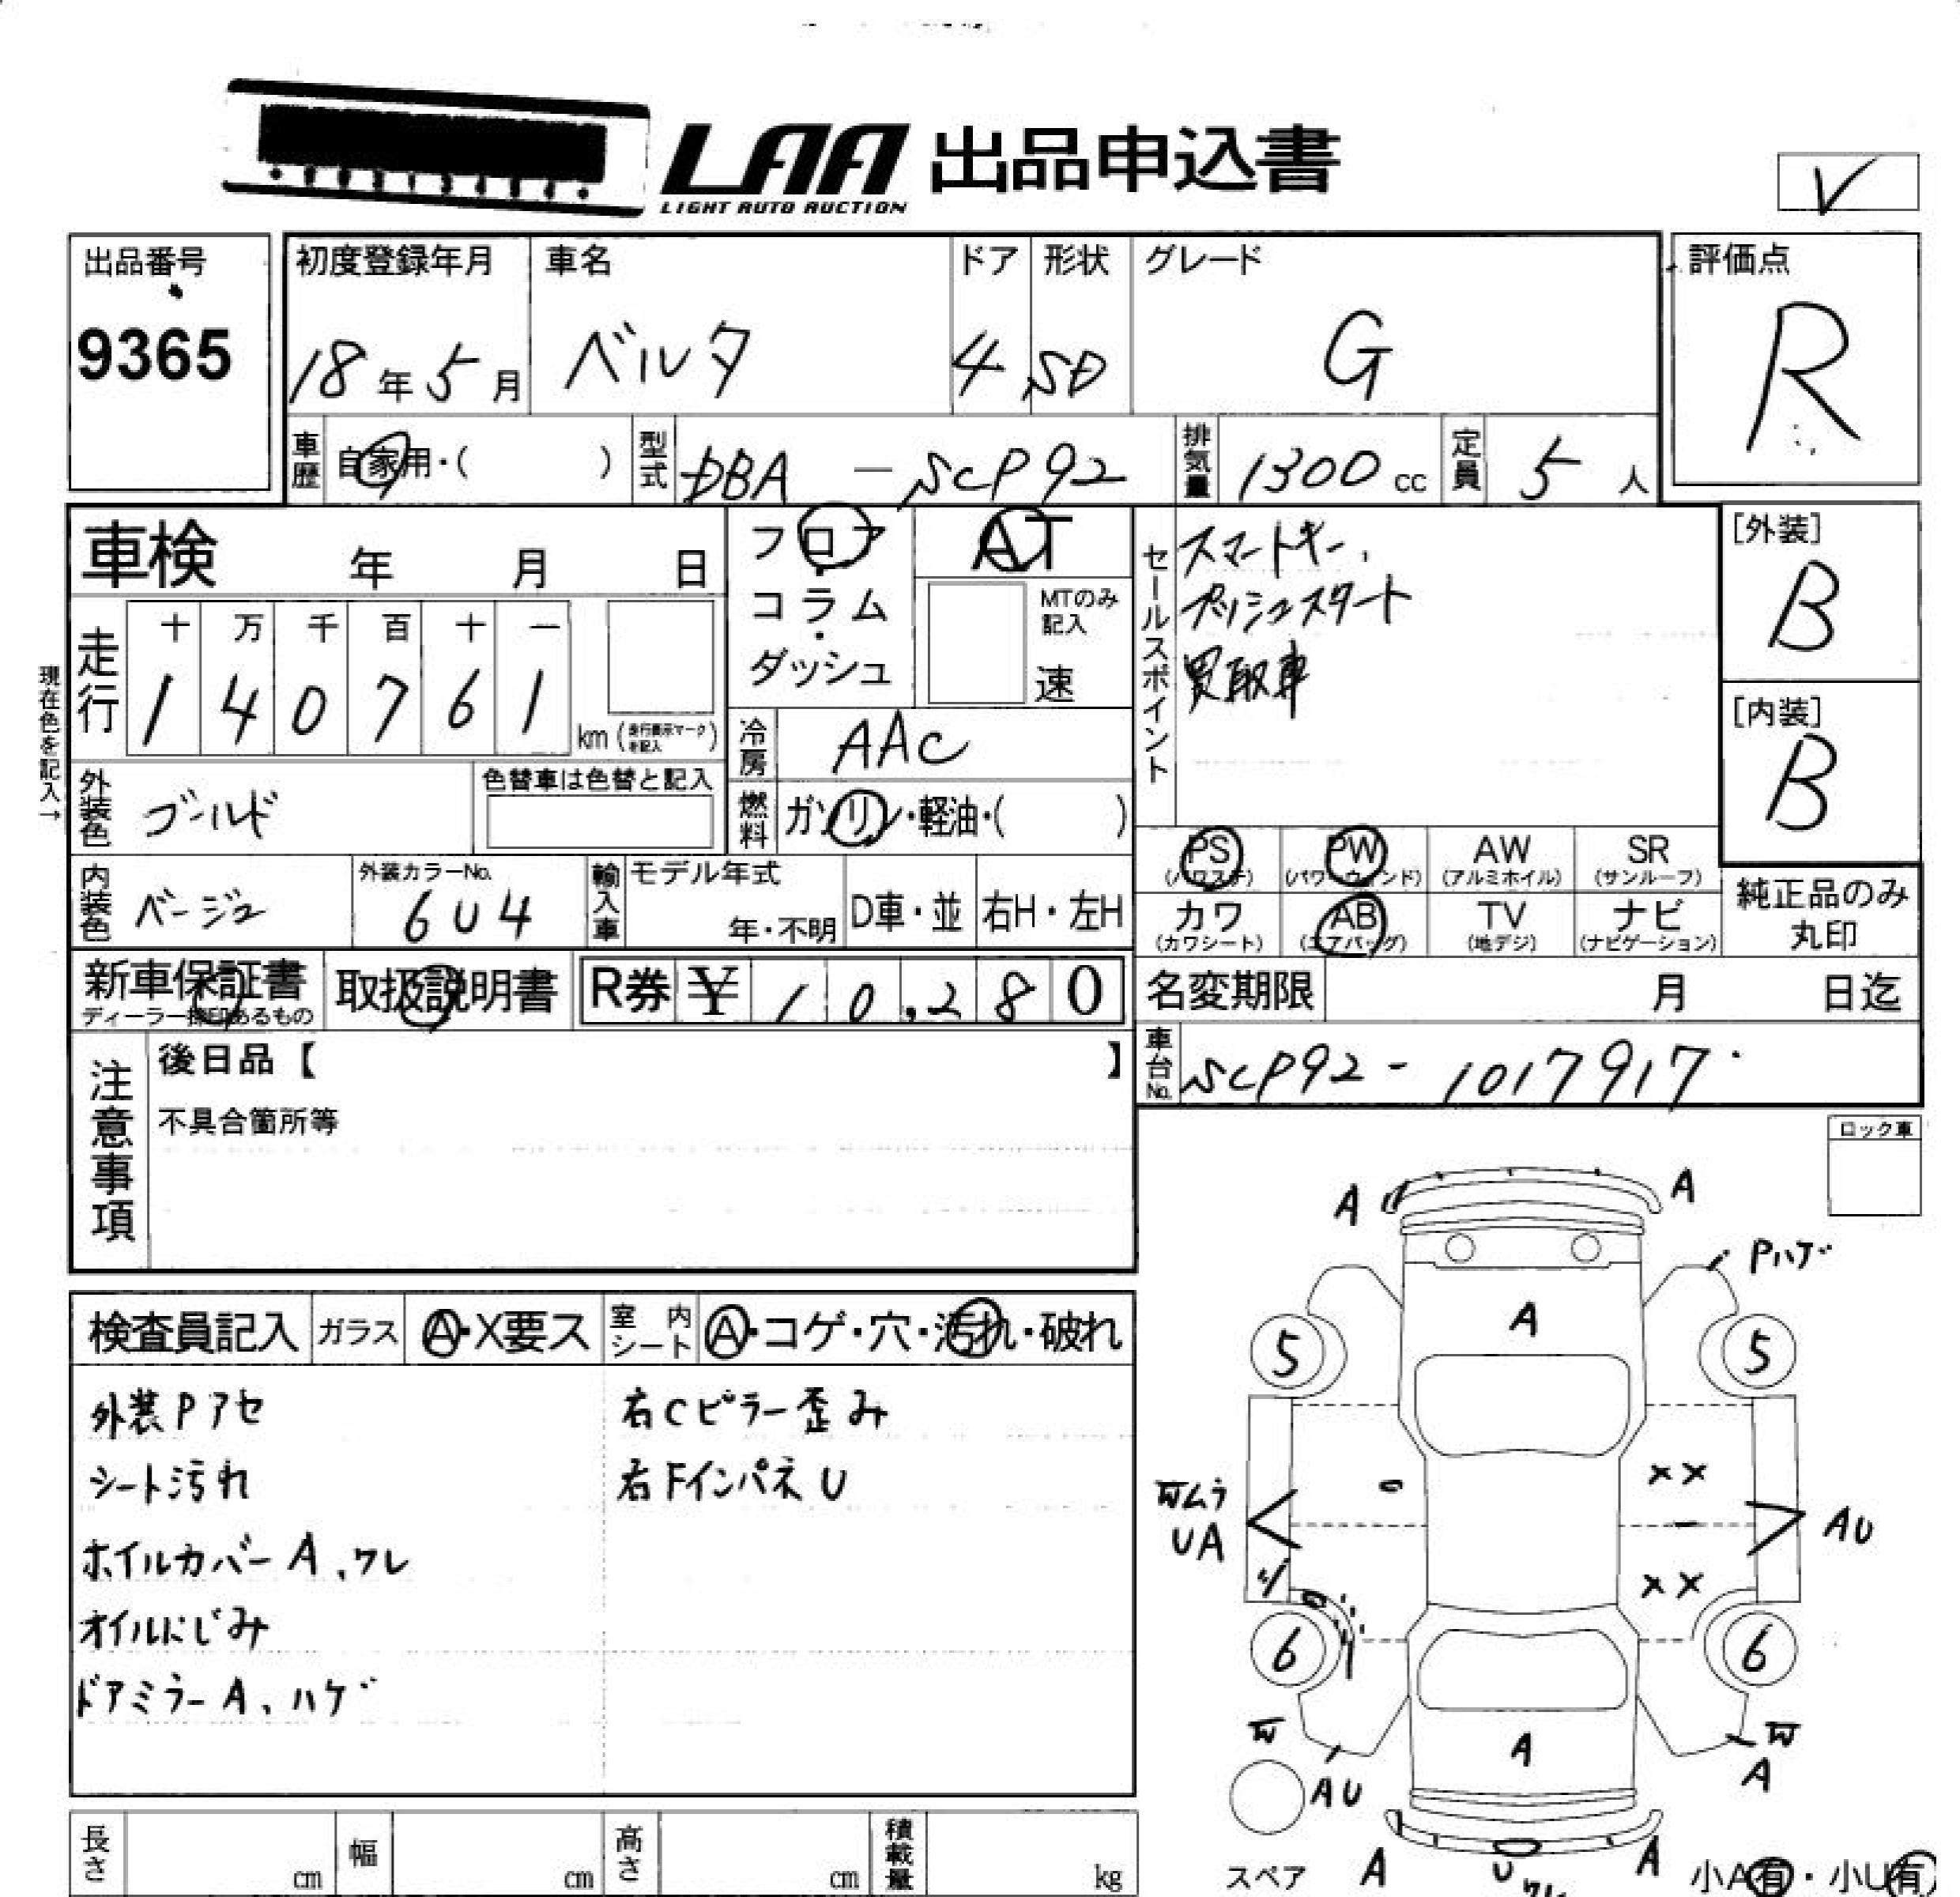 LAA 出品申込書
LIGHT AUTO AUCTION
V
出品番号
9365
初度登録年月
18年5月
車名
ベルタ
ドア
4
形状
SD
グレード
G
評価点
R
車歴
自家用・( )
型式
DBA - SCP92
排気量
1300 cc
定員
5 人
[外装]
B
[内装]
B
車検 年 月 日
フロア・コラム・ダッシュ
AT
MTのみ記入
速
セールスポイント
スマートキー、
プッシュスタート
買取車
現在色を記入→
走行
十 万 千 百 十 一
1 4 0 7 6 1
km (走行表示マークを記入)
冷房
AAC
外装色
ゴールド
色替車は色替と記入
燃料
ガソリン・軽油・( )
PS
(パワステ)
PW
(パワーウィンド)
AW
(アルミホイル)
SR
(サンルーフ)
カワ
(カワシート)
AB
(エアバッグ)
TV
(地デジ)
ナビ
(ナビゲーション)
純正品のみ
丸印
内装色
ベージュ
外装カラーNo.
6U4
輸入車
モデル年式
年・不明
D車・並
右H・左H
新車保証書
ディーラー捺印あるもの
取扱説明書
R券 ¥ 10,280
名変期限 月 日迄
車台No.
SCP92 - 1017917
注意事項
後日品【 】
不具合箇所等
ロック車
検査員記入
ガラス
A・X要ス
室内シート
A・コゲ・穴・汚れ・破れ
外装Pアセ
シート汚れ
ホイルカバーA、ワレ
オイルにじみ
ドアミラーA、ハゲ
右Cピラー歪み
右FインパネU
A
A
Pハゲ
A
5
5
XX
Wムラ
UA
AU
XX
6
6
W
W
A
A
AU
スペア
A
U
ワレ
A
小A有・小U有
長さ
cm
幅
cm
高さ
cm
積載量
kg